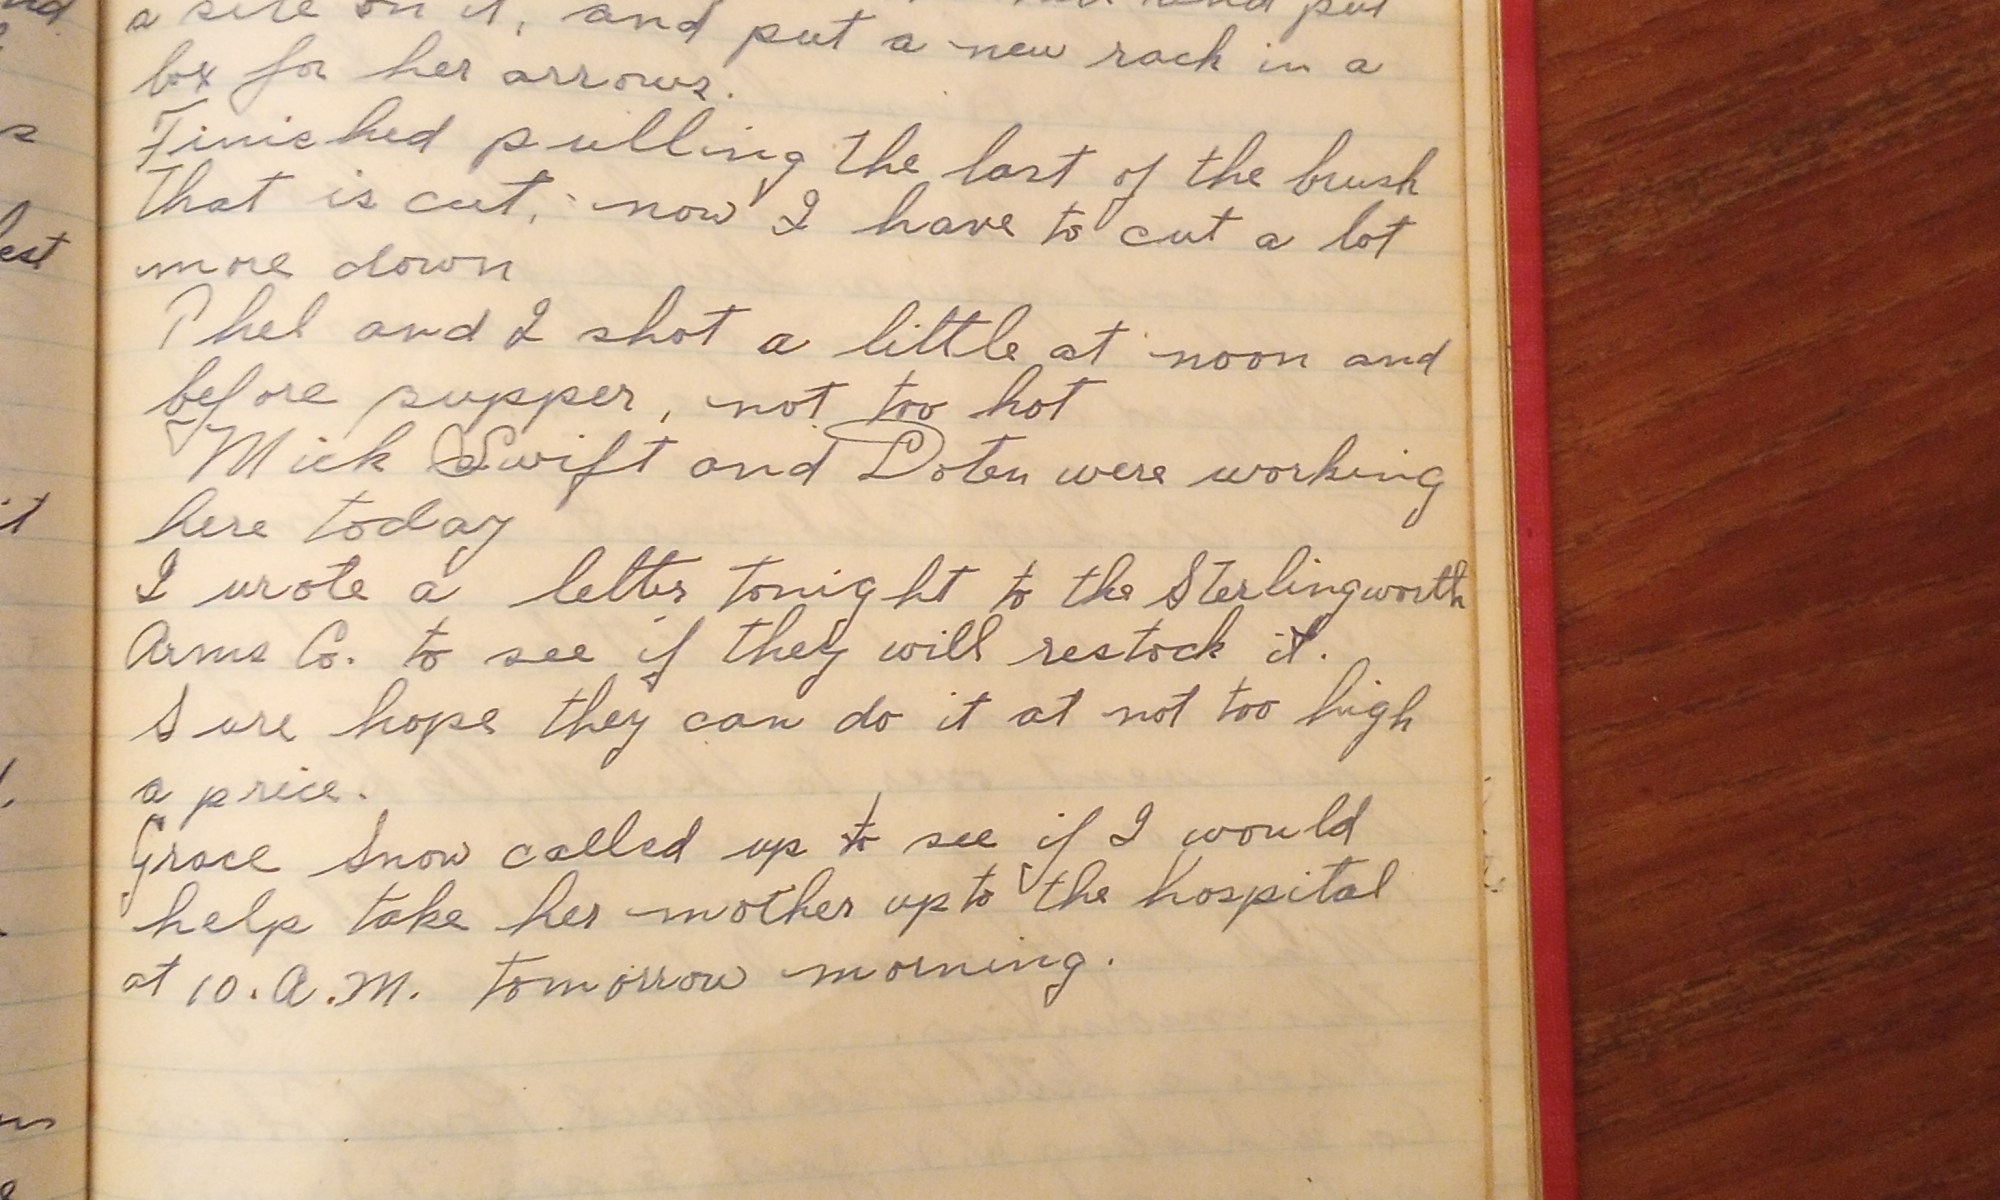 a site on it, and put a new rack in a
box for her arrows.
Finished pulling the last of the brush
that is cut, now I have to cut a lot
more down
Phel and I shot a little at noon and
before supper, not too hot
Mick Swift and Doten were working
here today
I wrote a letter tonight to the Sterlingworth
Arms Co. to see if they will restock it.
Sure hope they can do it at not too high
a price.
Grace Snow called up to see if I would
help take her mother up to the hospital
at 10. A.M. tomorrow morning.